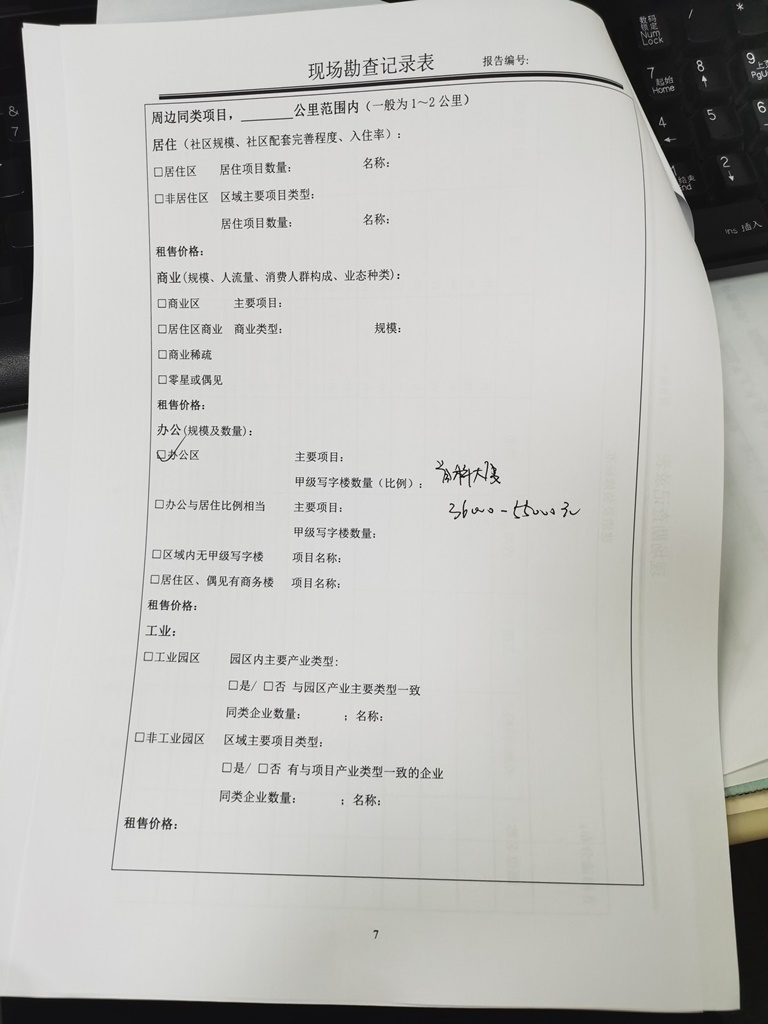 现场勘查记录表 报告编号:
周边同类项目，______公里范围内（一般为1～2公里）
居住（社区规模、社区配套完善程度、入住率）：
□居住区 居住项目数量： 名称：
□非居住区 区域主要项目类型：
居住项目数量： 名称：
租售价格：
商业(规模、人流量、消费人群构成、业态种类)：
□商业区 主要项目：
□居住区商业 商业类型： 规模：
□商业稀疏
□零星或偶见
租售价格：
办公(规模及数量)：
☑办公区 主要项目：
甲级写字楼数量（比例）： 科大厦
□办公与居住比例相当 主要项目： 36000-55000元
甲级写字楼数量：
□区域内无甲级写字楼 项目名称：
□居住区、偶见有商务楼 项目名称：
租售价格：
工业：
□工业园区 园区内主要产业类型:
□是/ □否 与园区产业主要类型一致
同类企业数量： ；名称：
□非工业园区 区域主要项目类型：
□是/ □否 有与项目产业类型一致的企业
同类企业数量： ；名称：
租售价格：
7
数码
锁定
Num
Lock
/
*
7
起始
Home
8
↑
9
PgU
4
←
5
6
2
↓
Ins 插入
&
7